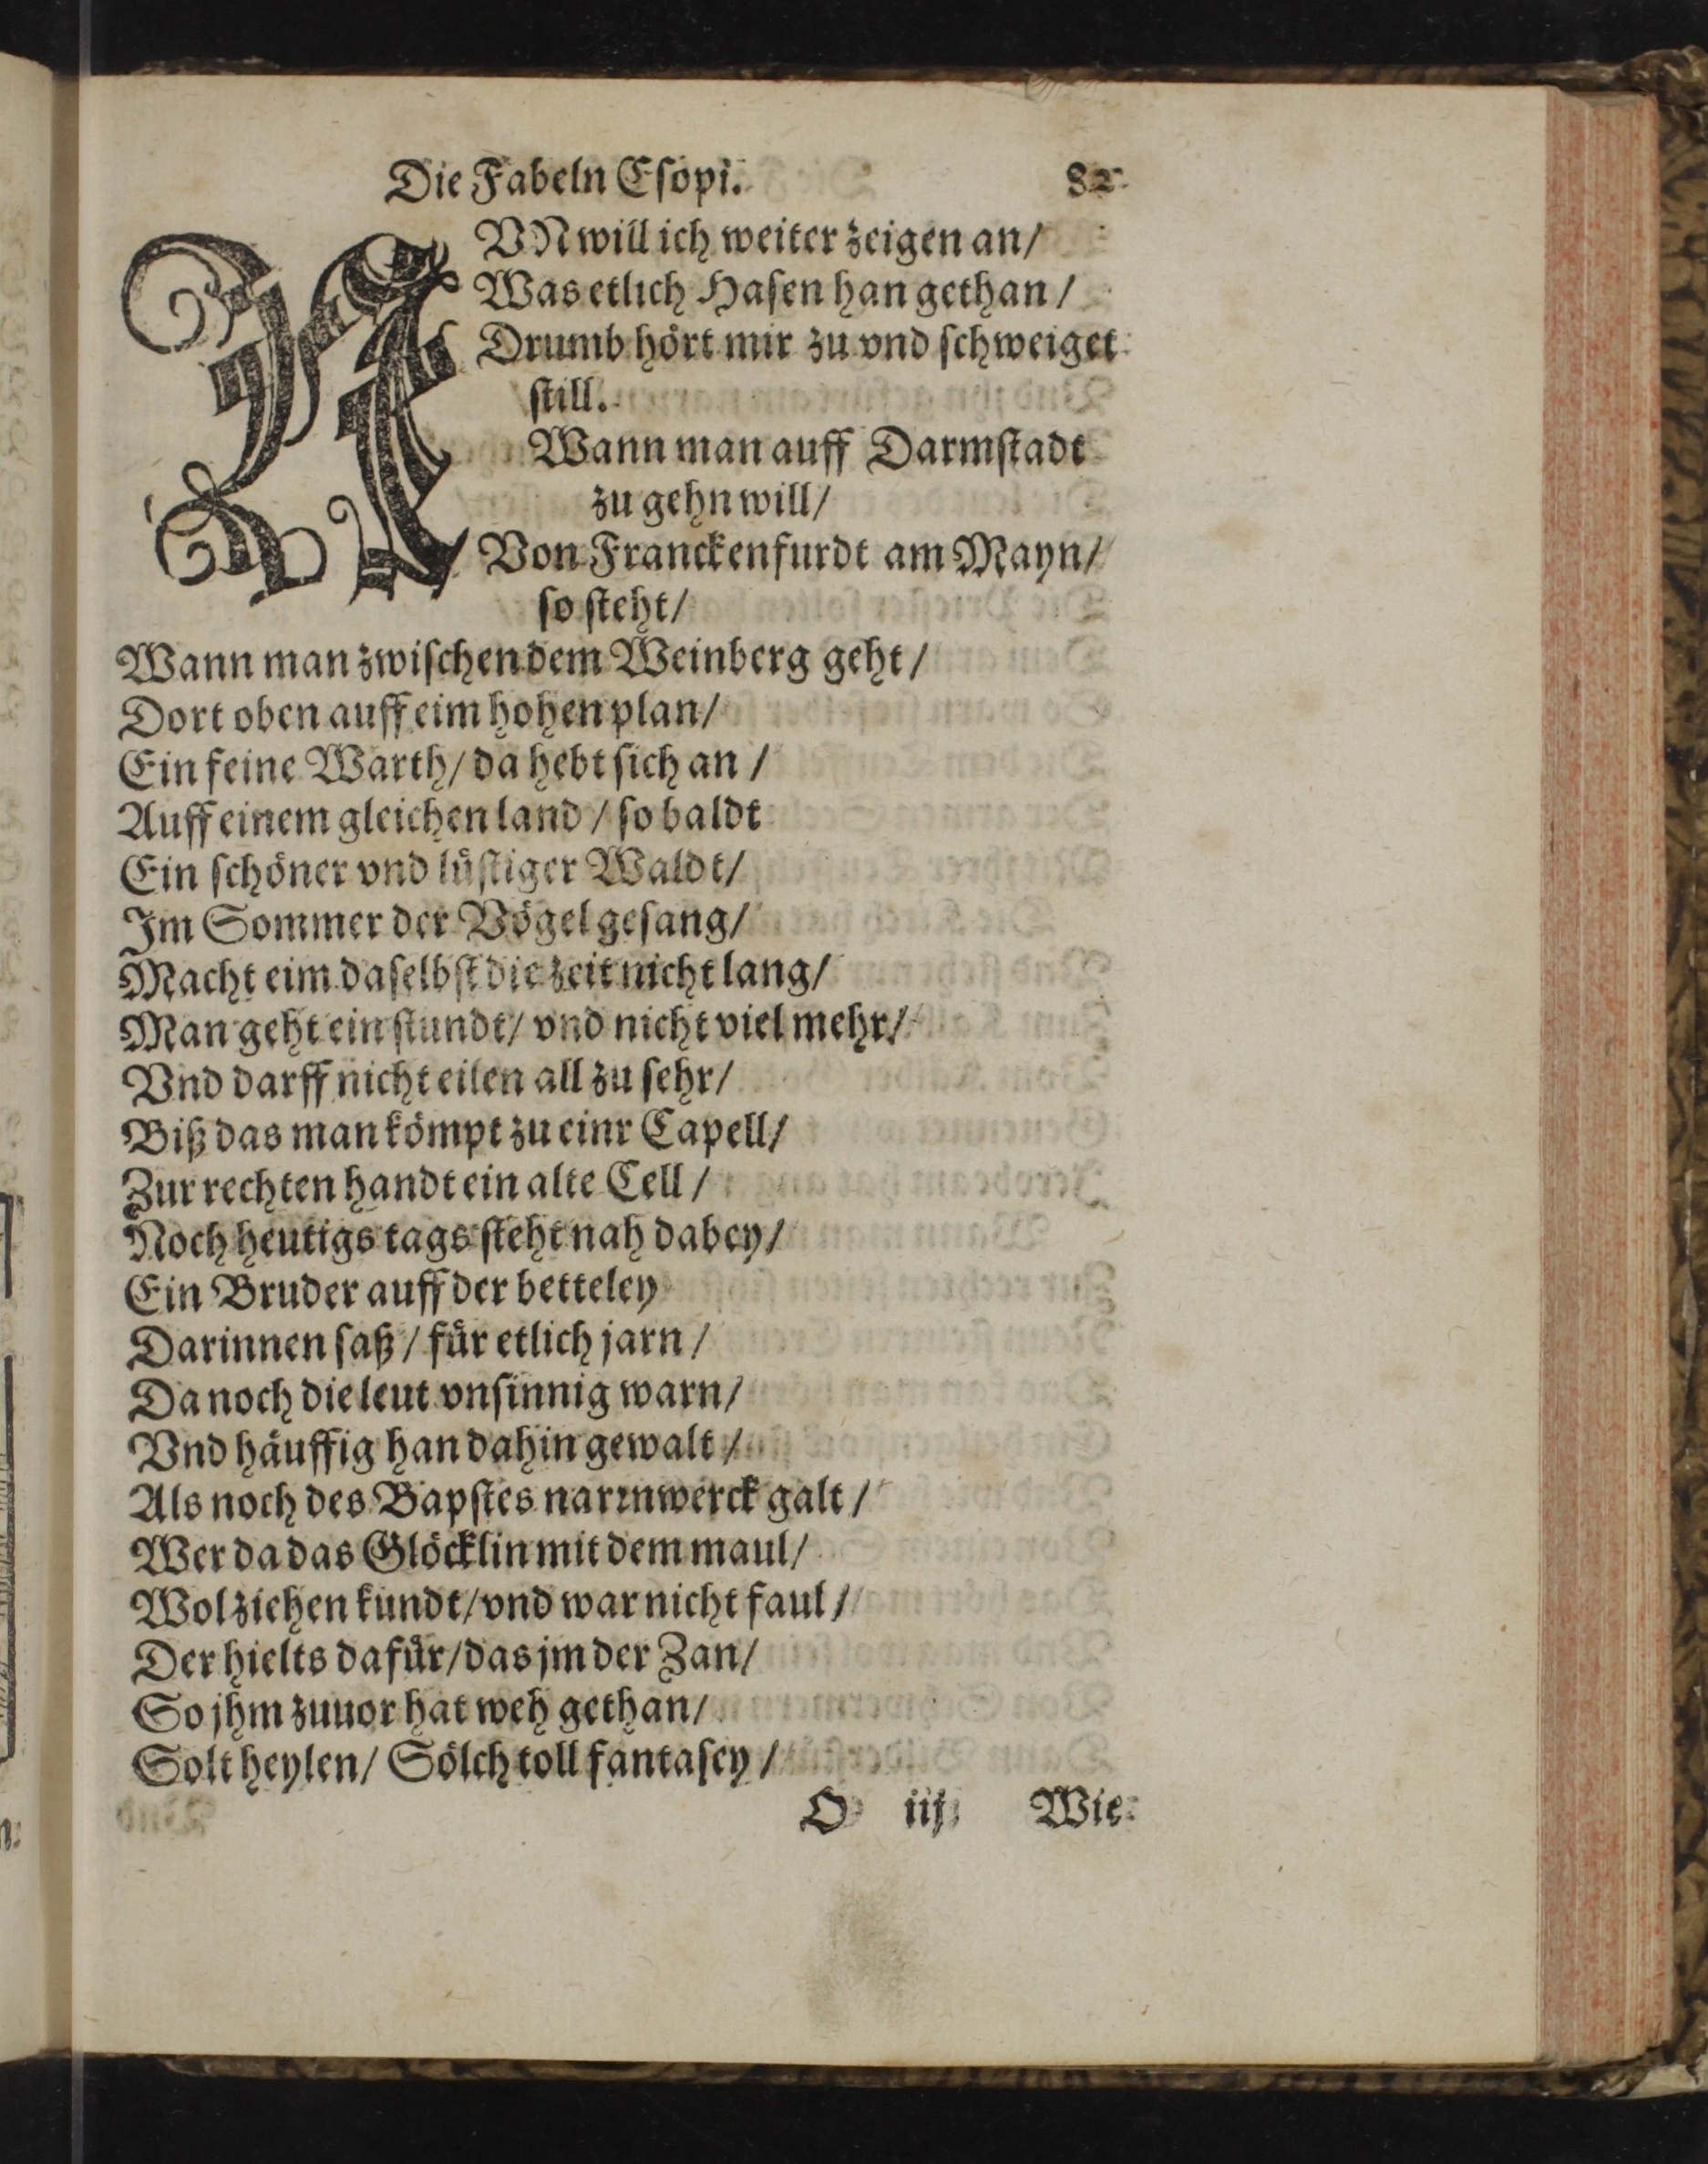 Die Fabeln Eſopi. 82
NVN will ich weiter zeigen an/
Was etlich Haſen han gethan/
Drumb hört mir zu vnd ſchweiget
ſtill.
Wann man auff Darmſtadt
zu gehn will/
Von Franckenfurdt am Mayn/
ſo ſteht/
Wann man zwiſchen dem Weinberg geht/
Dort oben auff eim hohen plan/
Ein feine Warth/ da hebt ſich an/
Auff einem gleichen land/ ſo baldt
Ein ſchöner vnd lüſtiger Waldt/
Im Sommer der Vögel geſang/
Macht eim daſelbſt die zeit nicht lang/
Man geht ein ſtundt/ vnd nicht viel mehr/
Vnd darff nicht eilen all zu ſehr/
Biß das man kömpt zu einr Capell/
Zur rechten handt ein alte Cell/
Noch heutigs tags ſteht nah dabey/
Ein Bruder auff der betteley
Darinnen ſaß/ für etlich jarn/
Da noch die leut vnſinnig warn/
Vnd häuffig han dahin gewalt/
Als noch des Bapſtes narrnwerck galt/
Wer da das Glöcklin mit dem maul/
Wol ziehen kundt/ vnd war nicht faul/
Der hielts dafür/ das jm der Zan/
So jhm zuuor hat weh gethan/
Solt heylen/ Sölch toll fantaſey/
O iij Wie